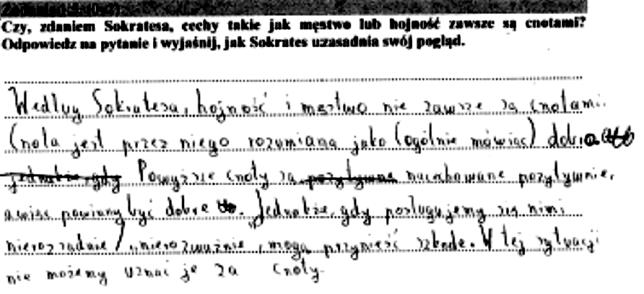 Czy, zdaniem Sokratesa, cechy takie jak męstwo lub hojność zawsze są cnotami?
Odpowiedz na pytanie i wyjaśnij, jak Sokrates uzasadnia swój pogląd.
Według Sokratesa, hojność i męstwo nie zawsze są cnotami.
Cnota jest przez niego rozumiana jako (ogólnie mówiąc) dobro
jednakże, gdy Powyższe cnoty są pozytywne nacechowane pozytywnie,
a więc powinny być dobre. Jednakże, gdy posługujemy się nimi
nierozsądnie/„nierozważnie, mogą przynieść szkodę. W tej sytuacji
nie możemy uznać je za cnoty.